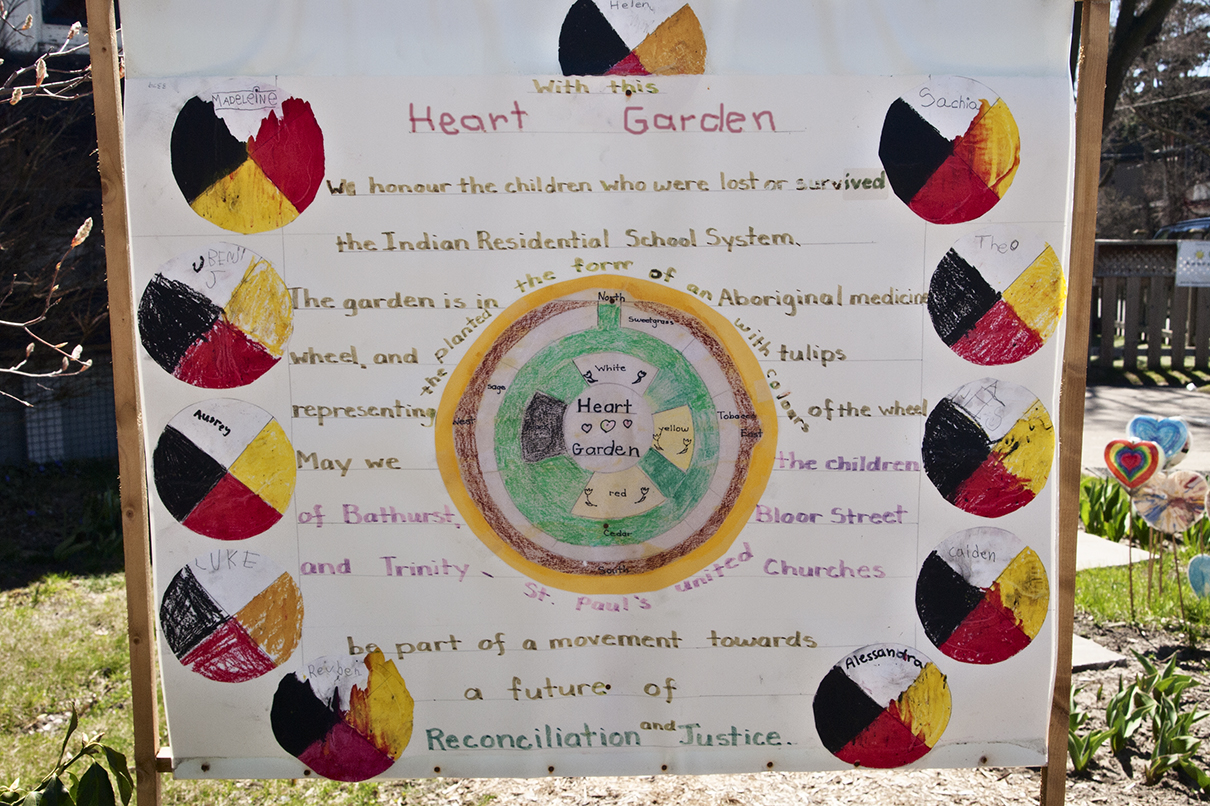 Helen
With this
Heart Garden
We honour the children who were lost or survived
the Indian Residential School System.
The garden is in the form of an Aboriginal medicine
wheel, and the planted with tulips
representing colours of the wheel
May we the children
of Bathurst, Bloor Street
and Trinity St. Paul's United Churches
be part of a movement towards
a future of
Reconciliation and Justice.
Madeleine
Benji
J
Audrey
Luke
Reuben
Sachia
Theo
Calden
Alessandra
North
Sweetgrass
White
Sage
West
Heart
Garden
yellow
Tobacco
East
red
Cedar
South